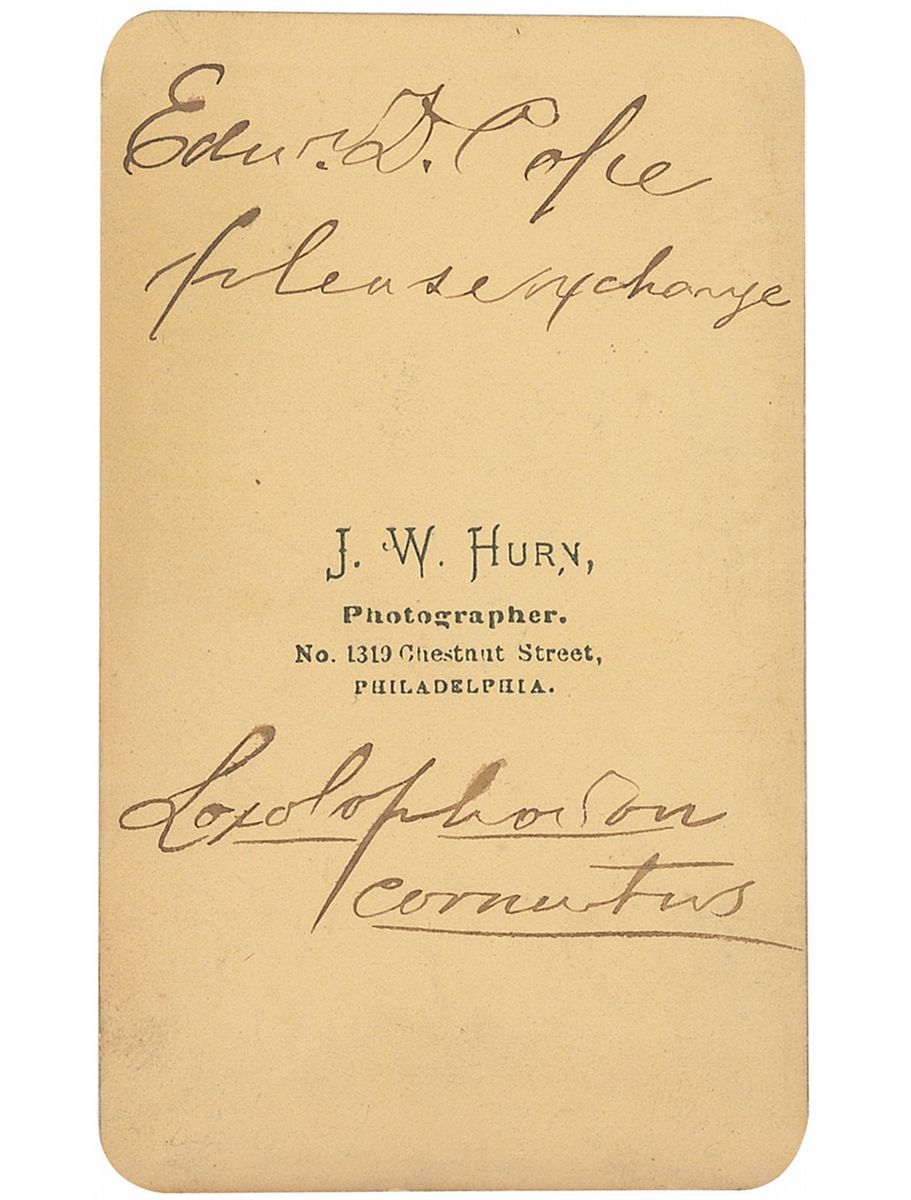 Edw. D. Cope
please exchange
J. W. HURN,
Photographer.
No. 1319 Chestnut Street,
PHILADELPHIA.
Loxolophodon
cornutus